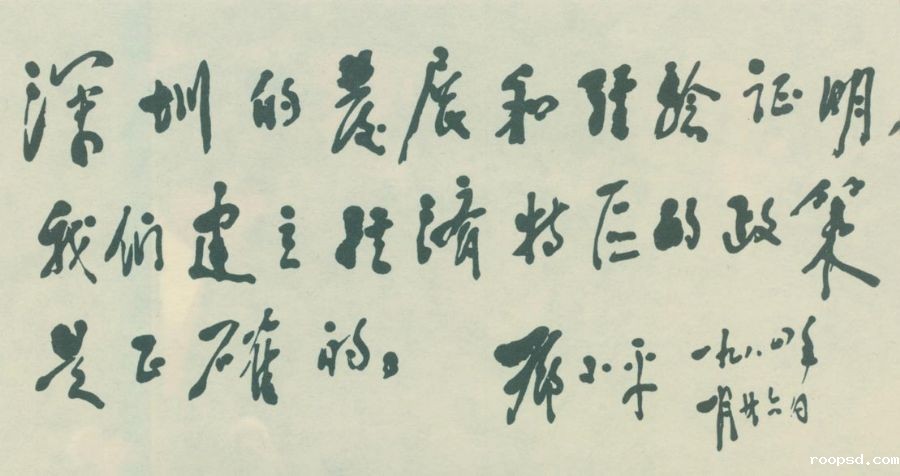 深圳的發展和經驗证明，
我们建立經濟特区的政策
是正確的。
鄧小平 一九八四年
一月廿六日
roopsd.com